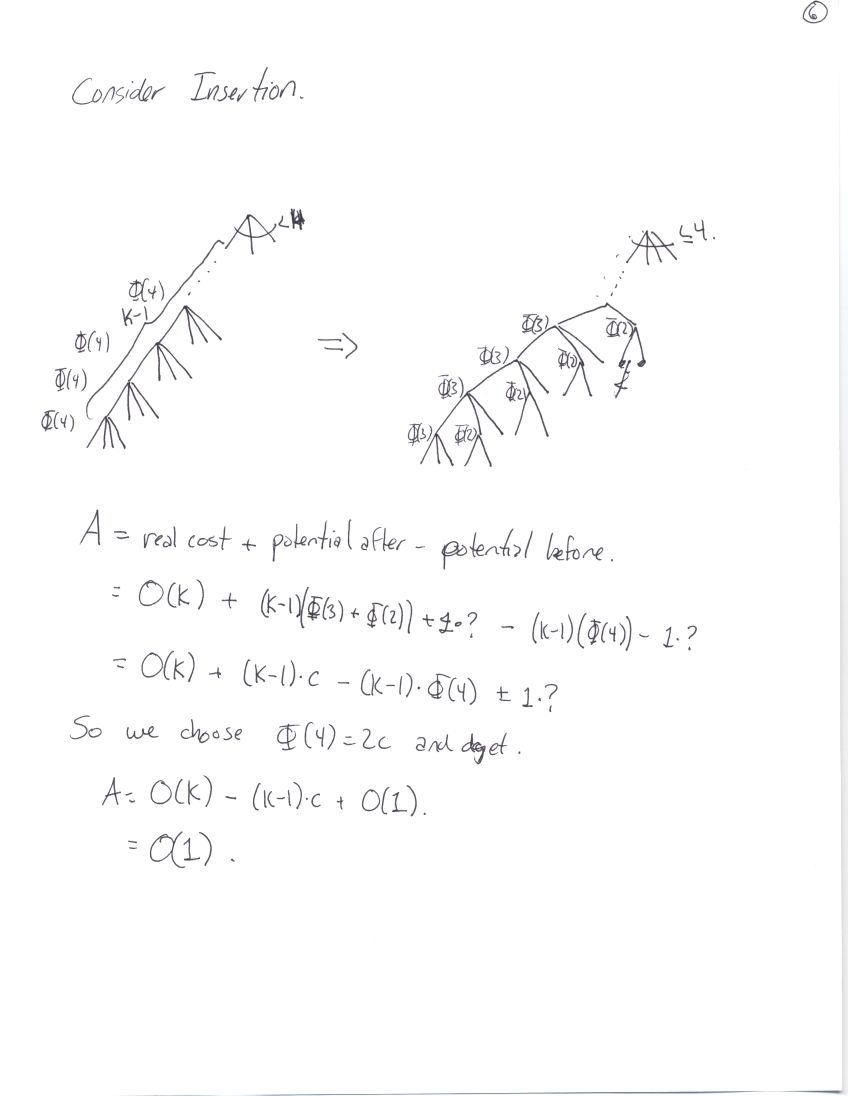 6
Consider Insertion.
<4
Φ(4)
K-1
Φ(4)
Φ(4)
Φ(4)
⇒
≤4.
Φ(3) Φ(2)
Φ(3) Φ(2)
Φ(3) Φ(2)
Φ(3) Φ(2)
A = real cost + potential after - potential before.
= O(K) + (K-1)(Φ(3) + Φ(2)) + 1.? - (K-1)(Φ(4)) - 1.?
= O(K) + (K-1)·c - (K-1)·Φ(4) ± 1.?
So we choose Φ(4)=2c and get.
A= O(K) - (K-1)·c + O(1).
= O(1).